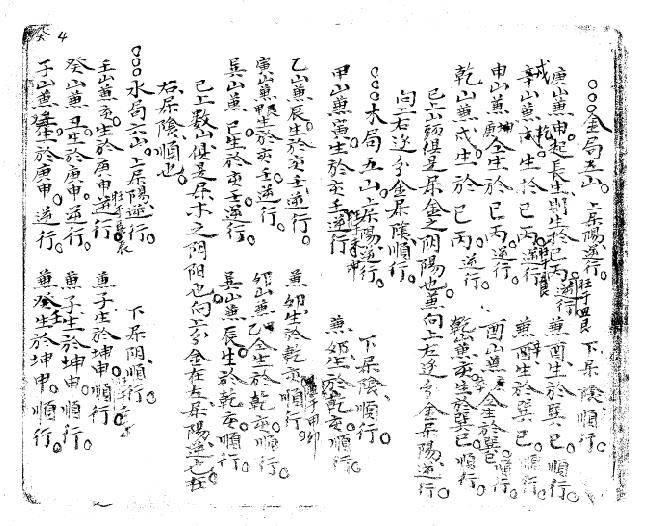 金局五山。上屬陽逆行。下屬陰順行。
庚山兼申起長生則生於巳丙逆行。兼酉生於巽巳順行。
辛山兼戌生於巳丙逆行。兼酉生於巽巳順行。
申山兼庚生於巳丙逆行。酉山兼辛生於巽巳順行。
乾山兼戌生於巳丙逆行。乾山兼亥生於巽巳順行。
已上山頭俱是屬金之阴陽也。兼向上左逆分金屬陽逆行
向上右逆分金屬陰順行。
木局五山上屬陽逆行。下屬陰順行。
甲山兼寅生於亥壬逆行兼卯生於乾亥順行
乙山兼辰生於亥壬逆行。兼卯生於乾亥順行
寅山兼甲生於亥壬逆行。卯山兼乙生於乾亥順行
巽山兼巳生於亥壬逆行。巽山兼辰生於乾亥順行
已上数山俱是屬木之阴阳也。向上分金在左屬陽逆也在
右屬陰順也
水局六山上屬陽逆行。下屬阴順行。
壬山兼亥生於庚申逆行兼子生於坤申順行
癸山兼丑生於庚申逆行。兼子生於坤申順行。
子山兼壬生於庚申逆行。兼癸生於坤申順行。
4